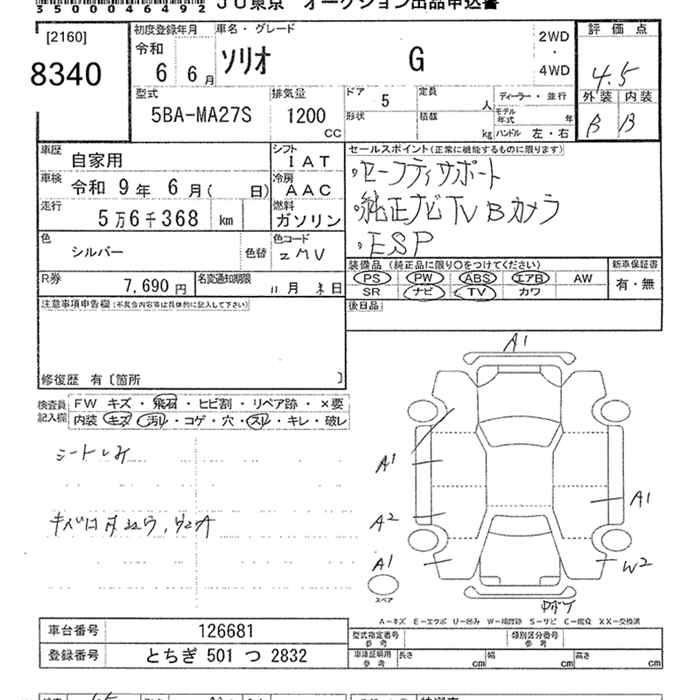 35000464892 JU東京 オークション出品申込書
[2160]
8340
初度登録年月
令和
6 6月
車名・グレード
ソリオ G
2WD
・
4WD
評価点
4.5
外装 内装
B B
型式
5BA-MA27S
排気量
1200
CC
ドア 5
定員 人
形状
積載 kg
ディーラー・並行
モデル年式 年
ハンドル 左・右
車歴 自家用
シフト IAT
車検 令和 9年 6月( 日)
冷房 AAC
走行 5万6千368 km
燃料 ガソリン
色 シルバー 色替
色コード ZMV
R券 7,690円
名変通知期限 11月 末日
セールスポイント(正常に機能するものに限ります)
・セーフティサポート
・純正ナビ TV Bカメラ
・ESP
装備品(純正品に限り○をつけてください)
PS PW ABS エアB AW
SR ナビ TV カワ
新車保証書
有・無
後日品
注意事項申告欄(不具合内容等は具体的に記入して下さい)
修復歴 有〔箇所 〕
検査員記入欄
FW キズ・飛石・ヒビ割・リペア跡・×要
内装 キズ・汚れ・コゲ・穴・スレ・キレ・破レ
シートしみ
A1
A1
A2
A1
A1
W2
スペア
A-キズ E-エクボ U-凹み W-補修跡 S-サビ C-腐食 XX-交換済
車台番号 126681
登録番号 とちぎ 501 つ 2832
型式指定番号 参考
類別区分番号 参考
車庫証明用 参考
長さ cm 幅 cm 高さ cm